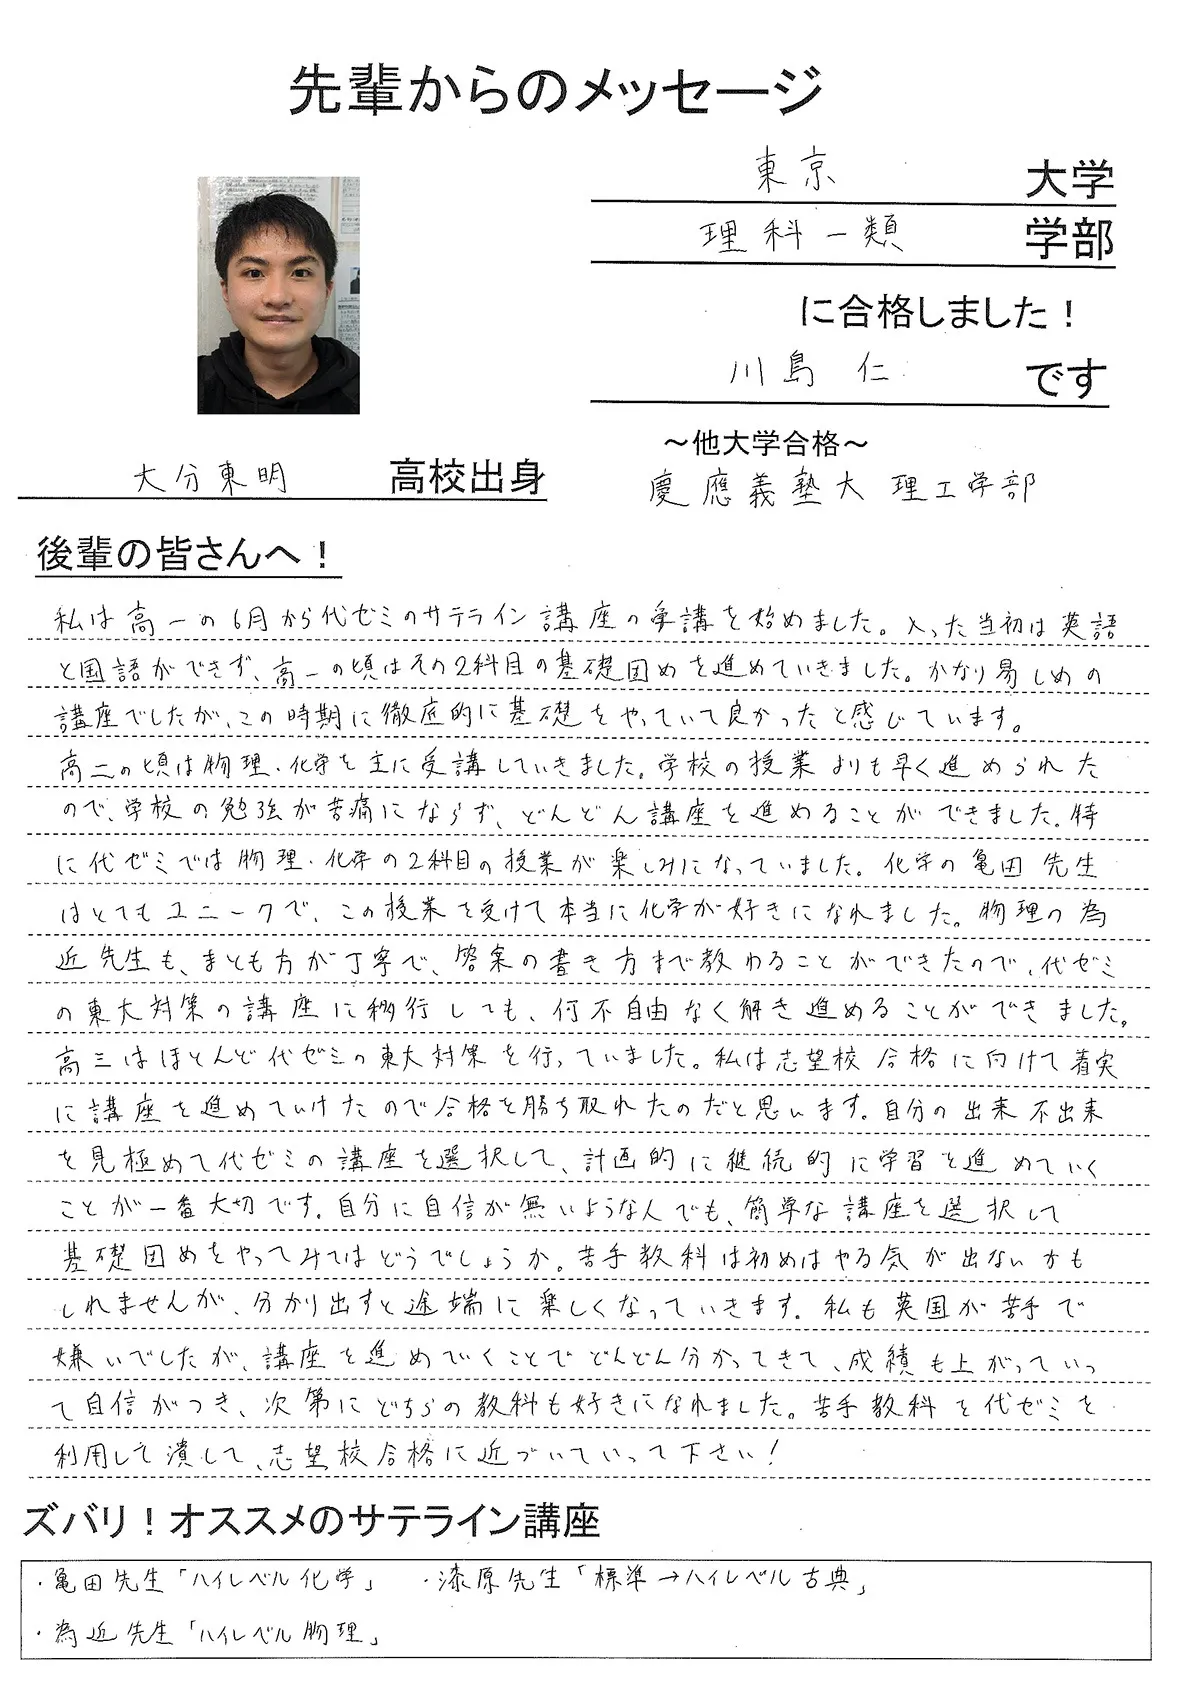 先輩からのメッセージ
東京 大学
理科一類 学部
に合格しました！
川島 仁 です
～他大学合格～
慶應義塾大 理工学部
大分東明 高校出身
後輩の皆さんへ！
私は高一の6月から代ゼミのサテライン講座の受講を始めました。入った当初は英語
と国語ができず、高一の頃はその2科目の基礎固めを進めていきました。かなり易しめの
講座でしたが、この時期に徹底的に基礎をやっていて良かったと感じています。
高二の頃は物理・化学を主に受講していきました。学校の授業よりも早く進められた
ので、学校の勉強が苦痛にならず、どんどん講座を進めることができました。特
に代ゼミでは物理・化学の2科目の授業が楽しみになっていました。化学の亀田先生
はとてもユニークで、この授業を受けて本当に化学が好きになれました。物理の為
近先生も、まとも方が丁寧で、答案の書き方まで教わることができたので、代ゼミ
の東大対策の講座に移行しても、何不自由なく解き進めることができました。
高三はほとんど代ゼミの東大対策を行っていました。私は志望校合格に向けて着実
に講座を進めていけたので合格を勝ち取れたのだと思います。自分の出来不出来
を見極めて代ゼミの講座を選択して、計画的に継続的に学習を進めていく
ことが一番大切です。自分に自信が無いような人でも、簡単な講座を選択して
基礎固めをやってみてはどうでしょうか。苦手教科は初めはやる気が出ないかも
しれませんが、分かり出すと途端に楽しくなっていきます。私も英国が苦手で
嫌いでしたが、講座を進めていくことでどんどん分かってきて、成績も上がっていっ
て自信がつき、次第にどちらの教科も好きになれました。苦手教科を代ゼミを
利用して潰して、志望校合格に近づいていって下さい！
ズバリ！オススメのサテライン講座
・亀田先生「ハイレベル化学」 ・漆原先生「標準→ハイレベル古典」
・為近先生「ハイレベル物理」